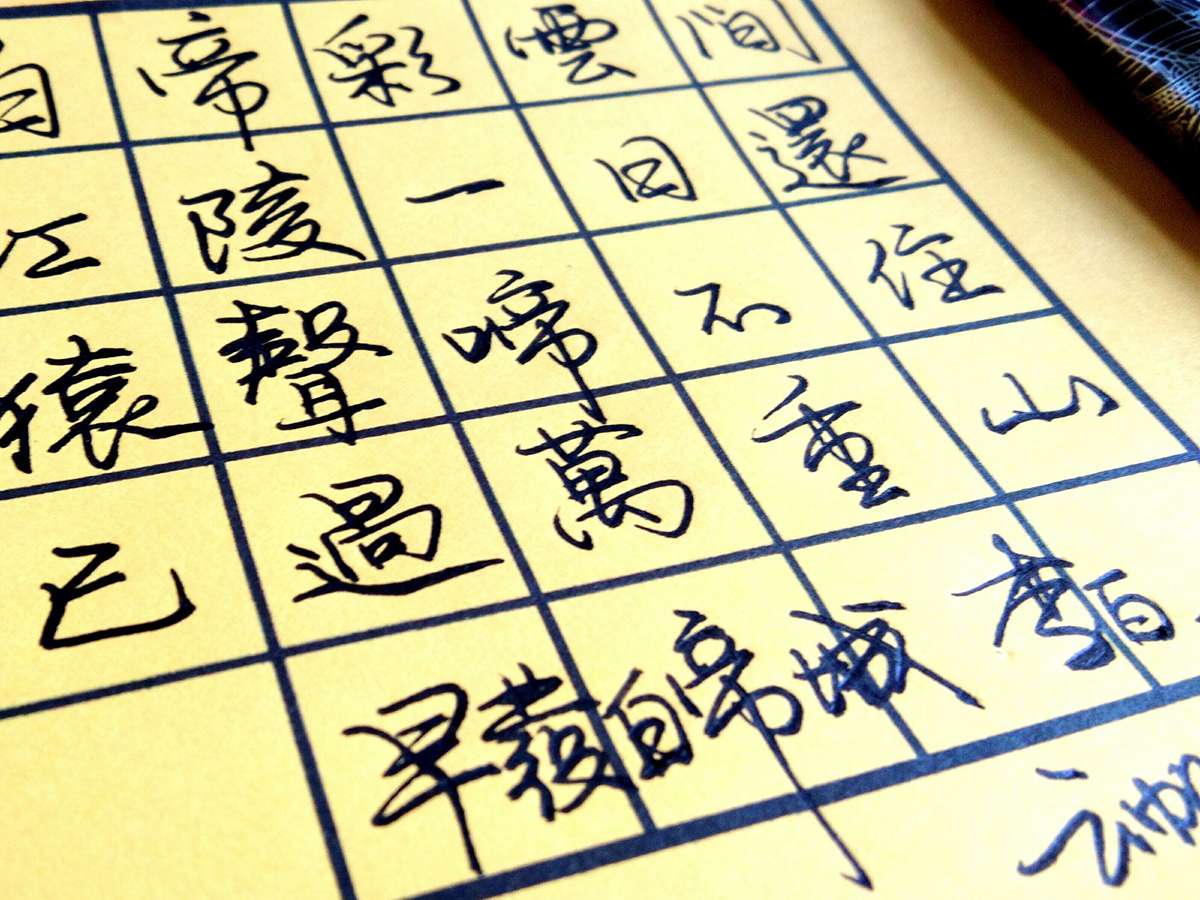 白帝彩雲間
江陵一日還
猿聲啼不住
已過萬重山
早發白帝城 李白